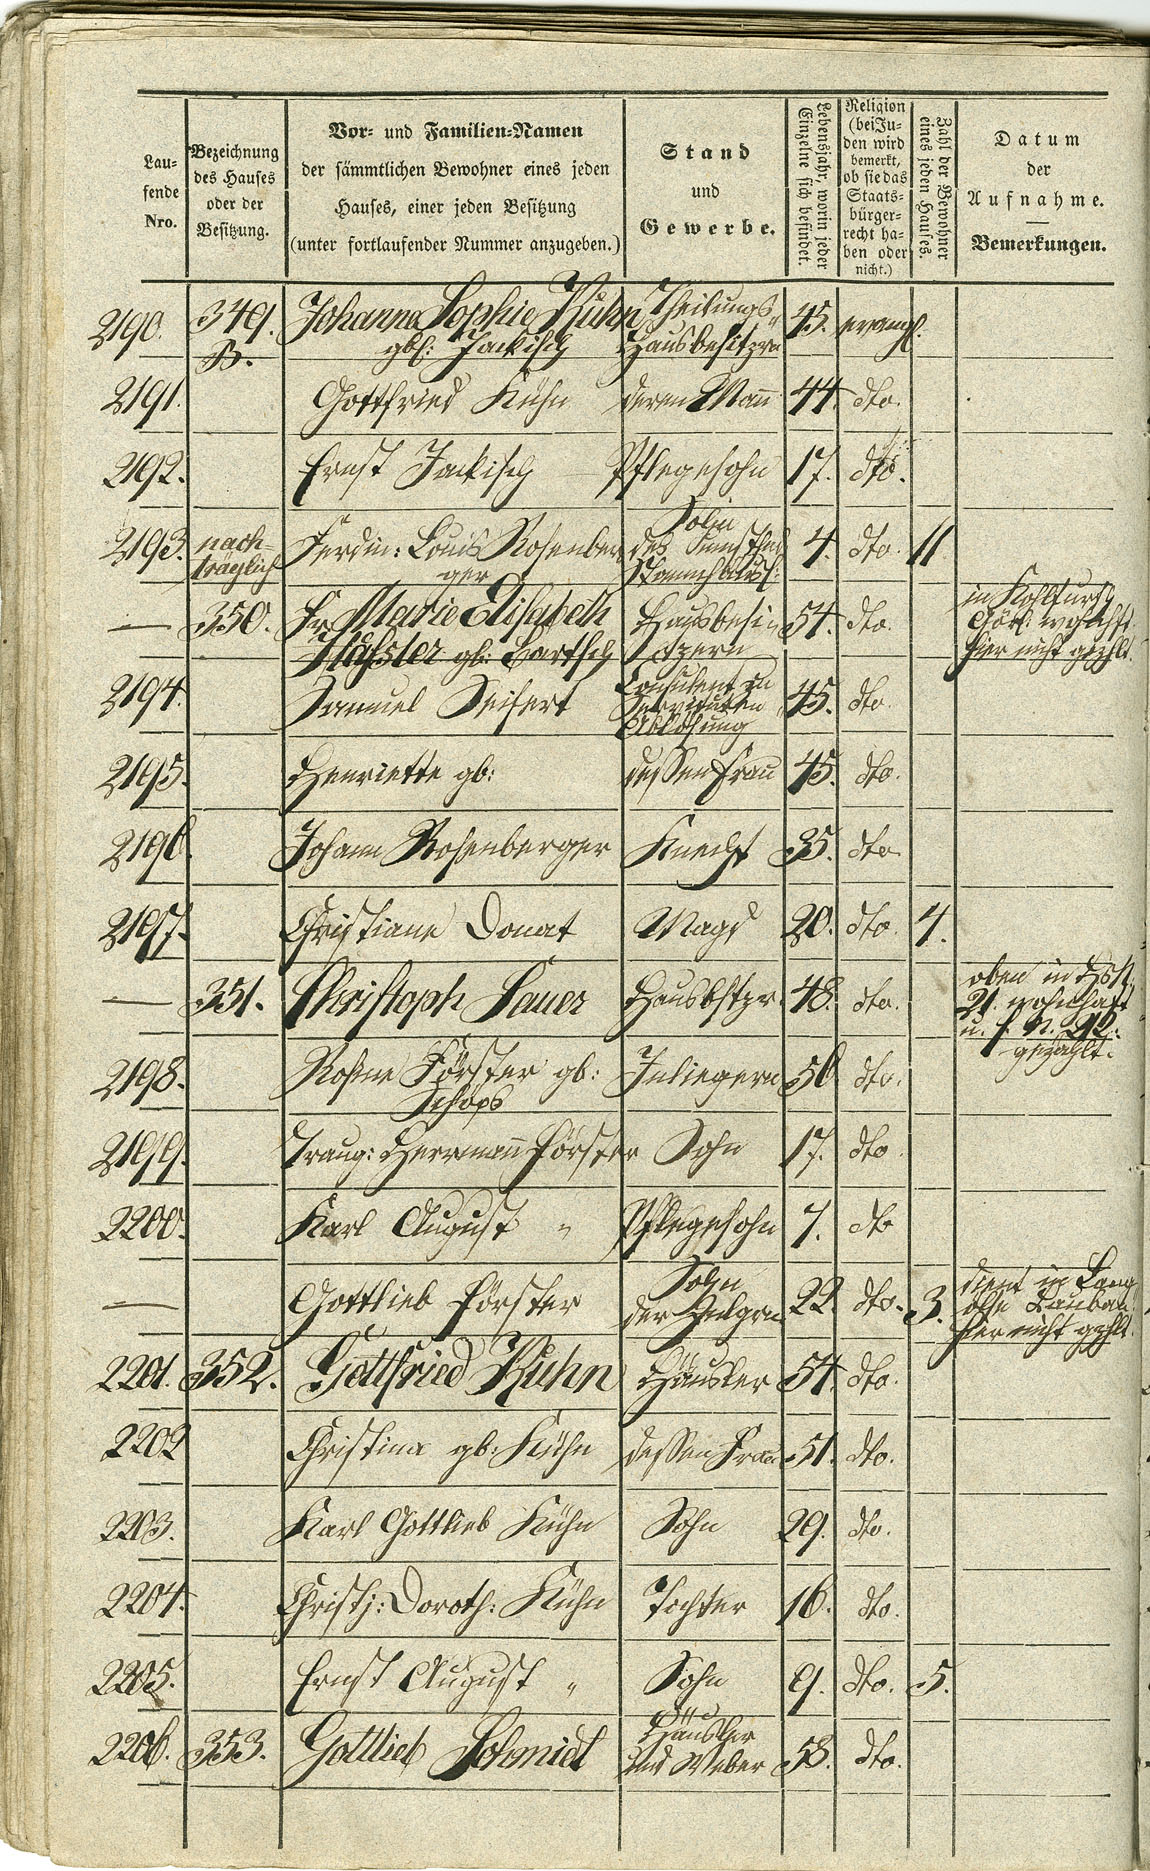 Lau-
fende
Nro.
Bezeichnung
des Hauses
oder der
Besitzung.
Vor- und Familien-Namen
der sämmtlichen Bewohner eines jeden
Hauses, einer jeden Besitzung
(unter fortlaufender Nummer anzugeben.)
Stand
und
Gewerbe.
Lebensjahr, worin jeder
Einzelne sich befindet.
Religion
(bei Ju-
den wird
bemerkt,
ob sie das
Staats-
bürger-
recht ha-
ben oder
nicht.)
Zahl der Bewohner
eines jeden Hauses.
Datum
der
Aufnahme.
Bemerkungen.
2190. 349. Johanna Sophie Kuhn Theilungs- 45. evangl.
B. gb: Jackisch Hausbesitzrn
2191. Gottfried Kühn deren Mann 44. dto.
2192. Ernst Jackisch Pflegesohn 17. dto.
2193. nach- Ferdin: Louis Rosenber Sohn des 4. dto. 11
träglich ger
— 350. Fr. Marie Elisabeth Hausbesi 54. dto. in Kohlfurth
gb: Bartsch tzern hier nicht gezhlt.
2194. Samuel Seifert Consulent in 45. dto.
Servituten
Ablösung
2195. Henriette gb: dessen Frau 45. dto.
2196. Johann Rosenberger Knecht 35. dto.
2197. Christiane Donat Magd 20. dto. 4.
— 351. Christoph Lauer Hausbstzr. 48. dto. oben in
21. wohnhaft
u. s. N. 92.
gezählt.
2198. Rosine Förster gb: Inliegern 56 dto.
Schöps
2199. Traug: Herrmann Förster Sohn 17. dto.
2200. Karl August " Pflegesohn 7. dto
— Gottlieb Förster Sohn 22. dto. 3. dient in Lang
der Inlgrn öls Lauban
hier nicht gzhlt.
2201. 352. Gottfried Kuhn Häusler 54. dto.
2202 Christina gb: Kühn dessen Frau 51. dto.
2203. Karl Gottlieb Kühn Sohn 29. dto.
2204. Christ: Doroth: Kühn Tochter 16. dto.
2205. Ernst August " Sohn 9. dto. 5.
2206. 353. Gottlieb Schmidt Häusler 58. dto.
und Weber